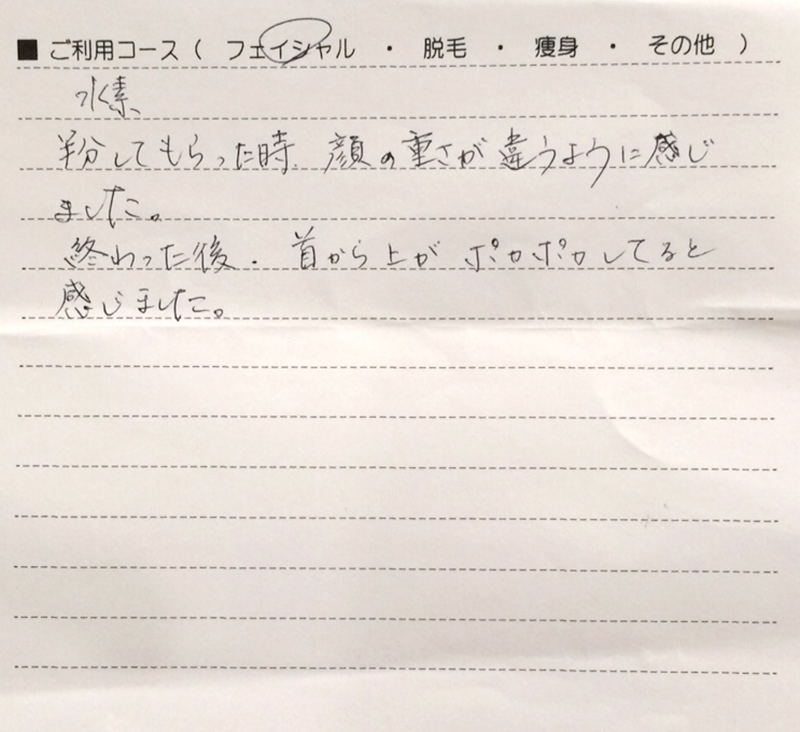 ■ ご利用コース（ フェイシャル ・ 脱毛 ・ 痩身 ・ その他 ）
水素
半分してもらった時、顔の重さが違うように感じ
ました。
終わった後、首から上がポカポカしてると
感じました。